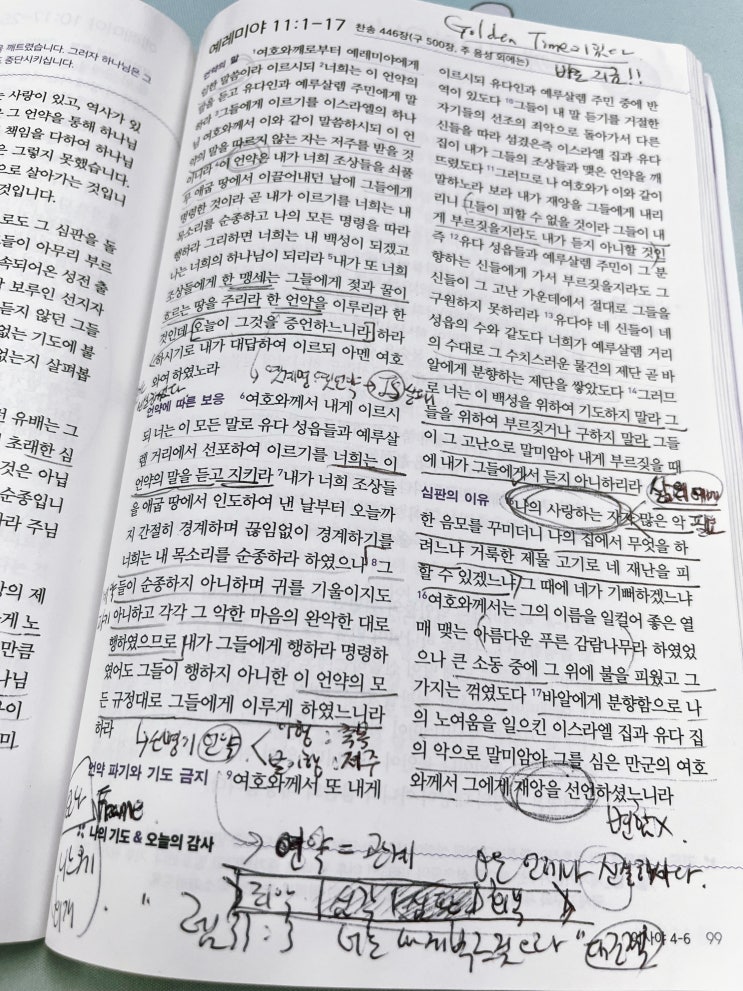 깨트렸습니다. 그러자 하나님은 그
중단시키십니다.
는 사랑이 있고, 역사가 있
그 언약을 통해 하나님
책임을 다하여 하나님
은 그렇지 못했습니다.
으로 살아가는 것입니
것입니다.
로도 그 심판을 돌
들이 아무리 부르
속되어온 성전 출
보루인 선지자
듣지 않던 그들
없는 기도에 불
없는지 살펴봅
런 유배는 그
초래한 심
것은 아닙
순종입니
라라 주님
상의 제
게 노
만큼
나님
우이
미
예레미야 11:1-17 찬송 446장(구 500장, 주 음성 외에는)
Golden Time이 있다
바로 지금!!
언약의 말 ¹여호와께로부터 예레미야에게
임한 말씀이라 이르시되 ²너희는 이 언약의
말을 듣고 유다인과 예루살렘 주민에게 말
하라 ³그들에게 이르기를 이스라엘의 하나
님 여호와께서 이와 같이 말씀하시되 이 언
약의 말을 따르지 않는 자는 저주를 받을 것
이니라 ⁴이 언약은 내가 너희 조상들을 쇠풀
무 애굽 땅에서 이끌어내던 날에 그들에게
명령한 것이라 곧 내가 이르기를 너희는 내
목소리를 순종하고 나의 모든 명령을 따라
행하라 그리하면 너희는 내 백성이 되겠고
나는 너희의 하나님이 되리라 ⁵내가 또 너희
조상들에게 한 맹세는 그들에게 젖과 꿀이
흐르는 땅을 주리라 한 언약을 이루리라 한
것인데 오늘이 그것을 증언하느니라 하라
하시기로 내가 대답하여 이르되 아멘 여호
와여 하였노라
언약에 따른 보응 ⁶여호와께서 내게 이르시
되 너는 이 모든 말로 유다 성읍들과 예루살
렘 거리에서 선포하여 이르기를 너희는 이
언약의 말을 듣고 지키라 ⁷내가 너희 조상들
을 애굽 땅에서 인도하여 낸 날부터 오늘까
지 간절히 경계하며 끊임없이 경계하기를
너희는 내 목소리를 순종하라 하였으나 ⁸그
들이 순종하지 아니하며 귀를 기울이지도
아니하고 각각 그 악한 마음의 완악한 대로
행하였으므로 내가 그들에게 행하라 명령하
였어도 그들이 행하지 아니한 이 언약의 모
든 규정대로 그들에게 이루게 하였느니라
하라
신명기 언약 < 이행 : 축복
불이행 : 저주
언약 파기와 기도 금지 ⁹여호와께서 또 내게
이르시되 유다인과 예루살렘 주민 중에 반
역이 있도다 ¹⁰그들이 내 말 듣기를 거절한
자기들의 선조의 죄악으로 돌아가서 다른
신들을 따라 섬겼은즉 이스라엘 집과 유다
집이 내가 그들의 조상들과 맺은 언약을 깨
뜨렸도다 ¹¹그러므로 나 여호와가 이와 같이
말하노라 보라 내가 재앙을 그들에게 내리
리니 그들이 피할 수 없을 것이라 그들이 내
게 부르짖을지라도 내가 듣지 아니할 것인
즉 ¹²유다 성읍들과 예루살렘 주민이 그 분
향하는 신들에게 가서 부르짖을지라도 그
신들이 그 고난 가운데에서 절대로 그들을
구원하지 못하리라 ¹³유다야 네 신들이 네
성읍의 수와 같도다 너희가 예루살렘 거리
의 수대로 그 수치스러운 물건의 제단 곧 바
알에게 분향하는 제단을 쌓았도다 ¹⁴그러므
로 너는 이 백성을 위하여 기도하지 말라 그
들을 위하여 부르짖거나 구하지 말라 그들
이 그 고난으로 말미암아 내게 부르짖을 때
에 내가 그들에게서 듣지 아니하리라
심판의 이유 나의 사랑하는 많은 악
한 음모를 꾸미더니 나의 집에서 무엇을 하
려느냐 거룩한 제물 고기로 네 재난을 피
할 수 있겠느냐 그 때에 네가 기뻐하겠느냐
¹⁶여호와께서는 그의 이름을 일컬어 좋은 열
매 맺는 아름다운 푸른 감람나무라 하였었
으나 큰 소동 중에 그 위에 불을 피웠고 그
가지는 꺾였도다 ¹⁷바알에게 분향함으로 나
의 노여움을 일으킨 이스라엘 집과 유다 집
의 악으로 말미암아 그를 심은 만군의 여호
와께서 그에게 재앙을 선언하셨느니라
변함X
나의 기도 & 오늘의 감사
언약 = 관계
렘 33:3 너는 내게 부르짖으라
4-6 99